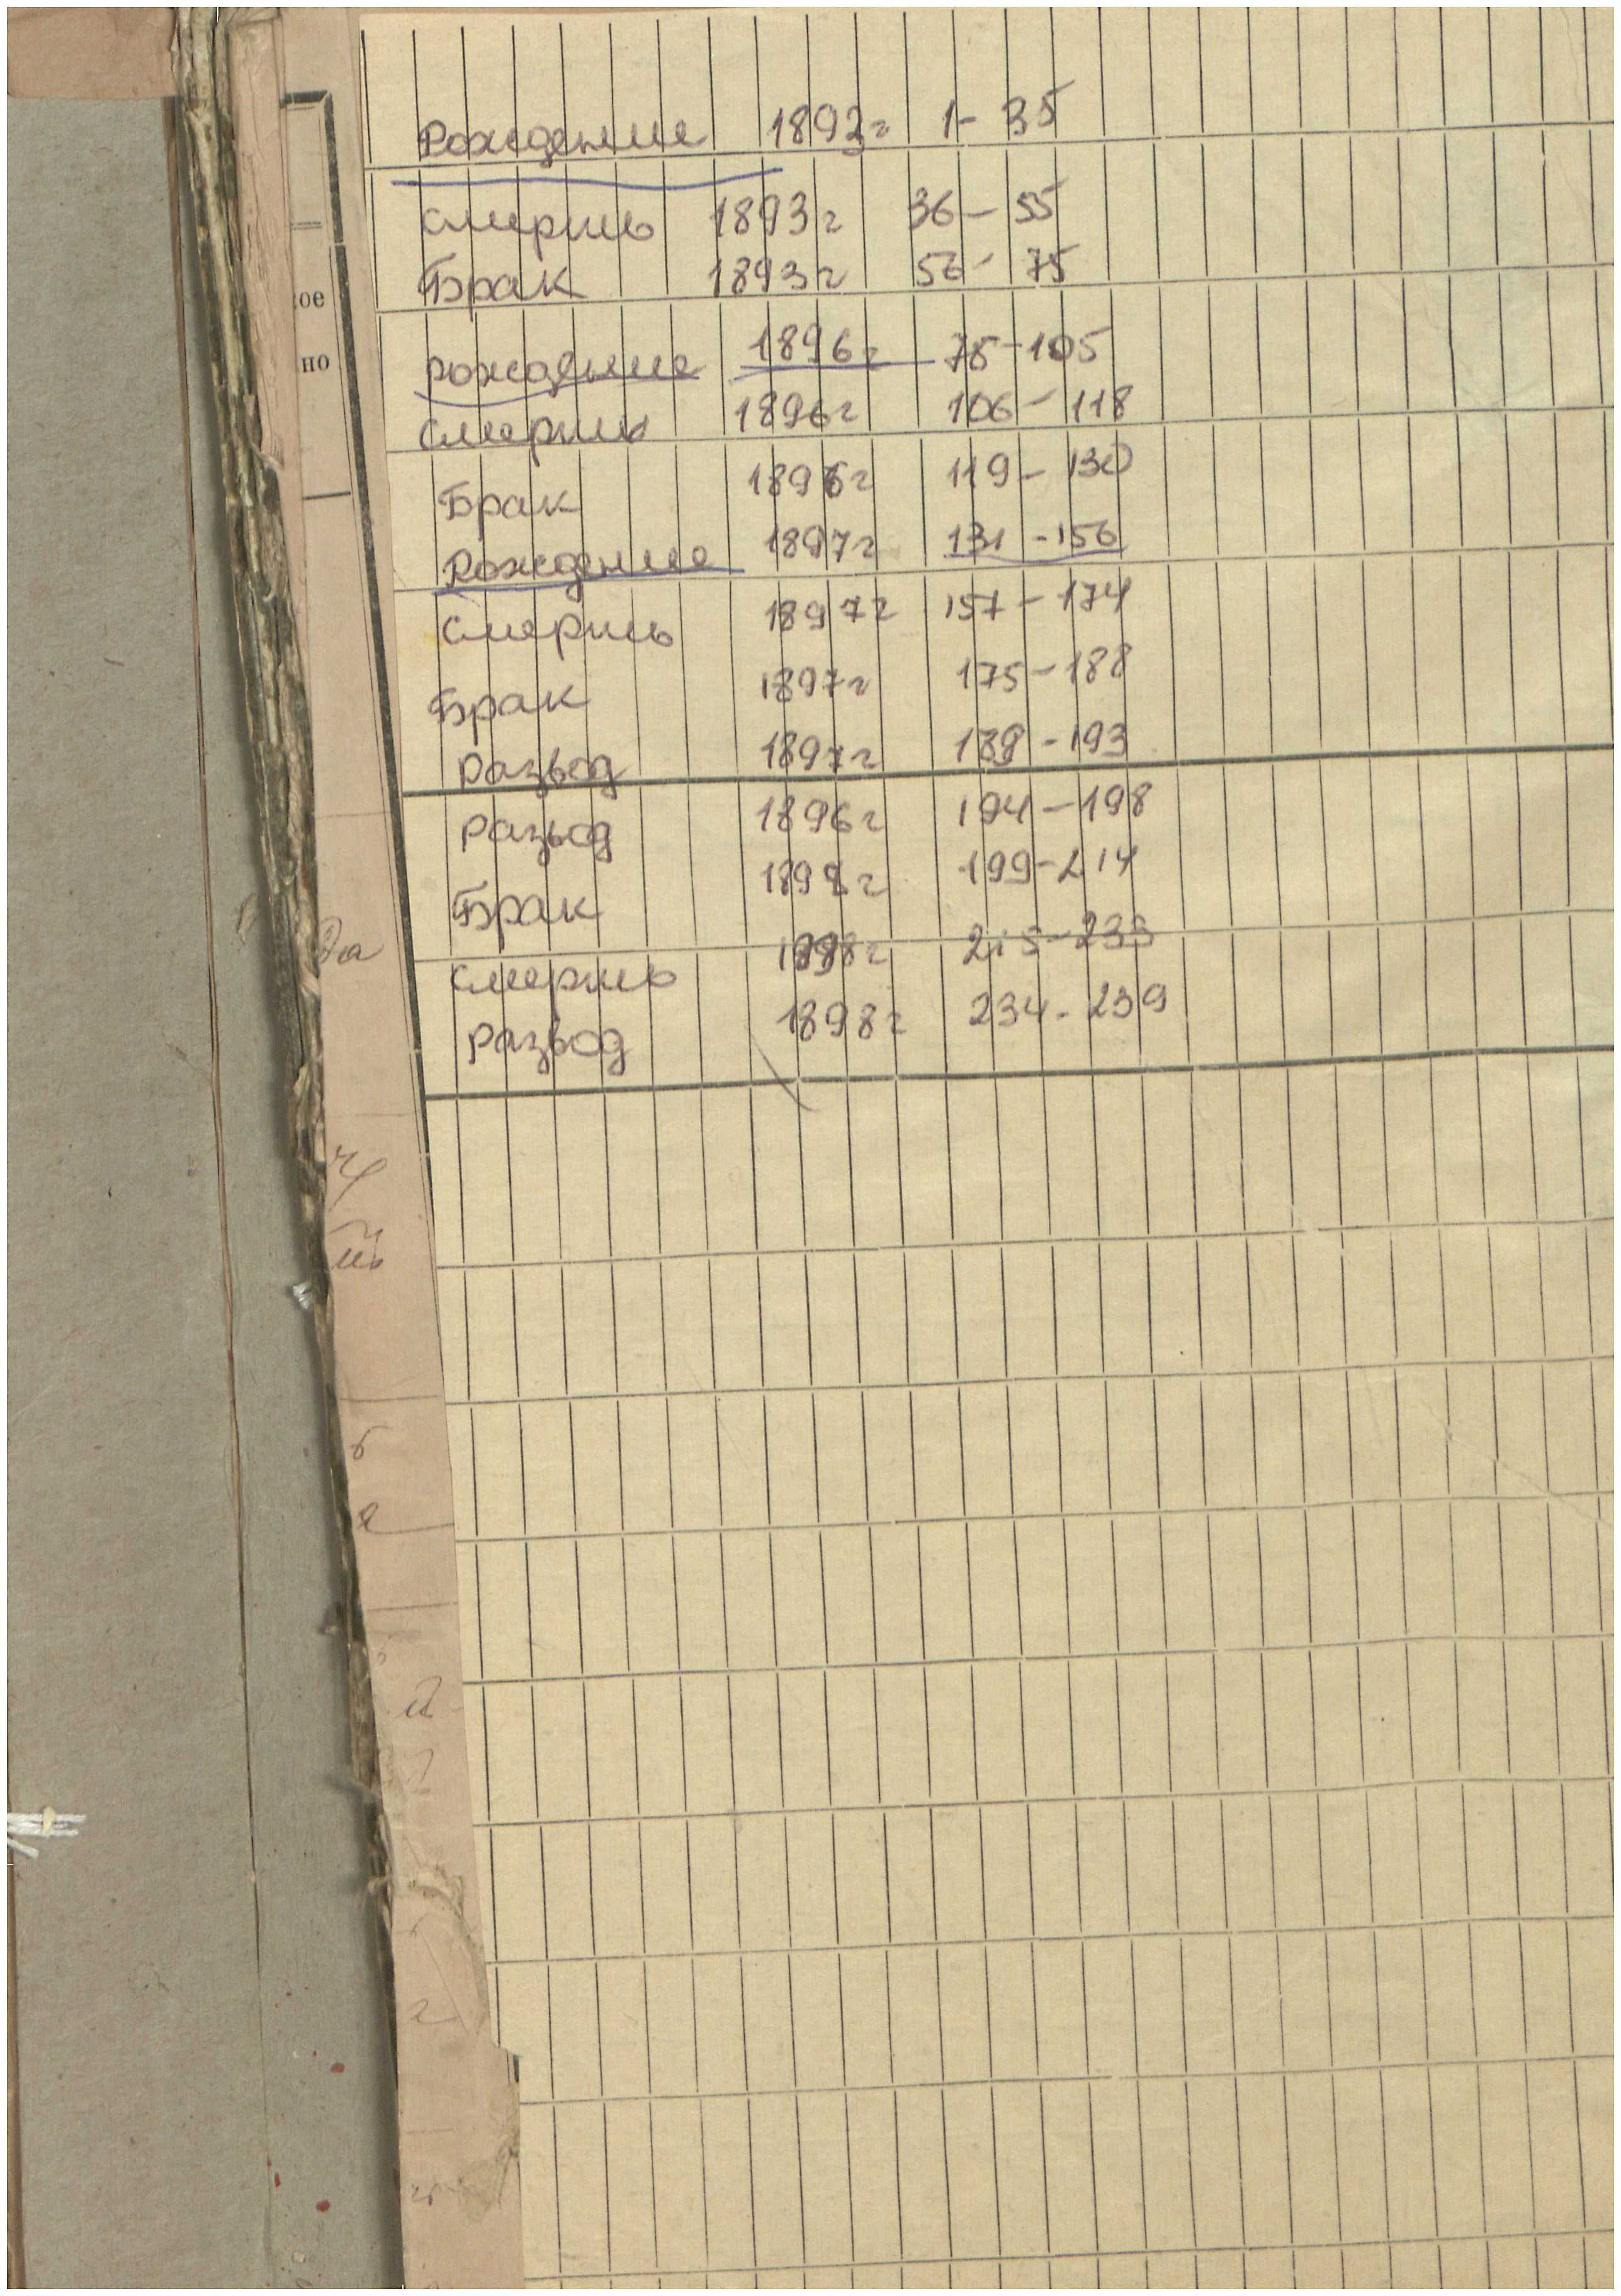 Рождение 1893г 1-35
Смерть 1893г 36-55
Брак 1893г 56-75
рождение 1896г 75-105
смерть 1896г 106-118
Брак 1896г 119-130
Рождение 1897г 131-156
смерть 1897г 157-174
Брак 1897г 175-188
развод 1897г 189-193
развод 1896г 194-198
Брак 1898г 199-214
смерть 1898г 215-233
развод 1898г 234-239
ое
но
да